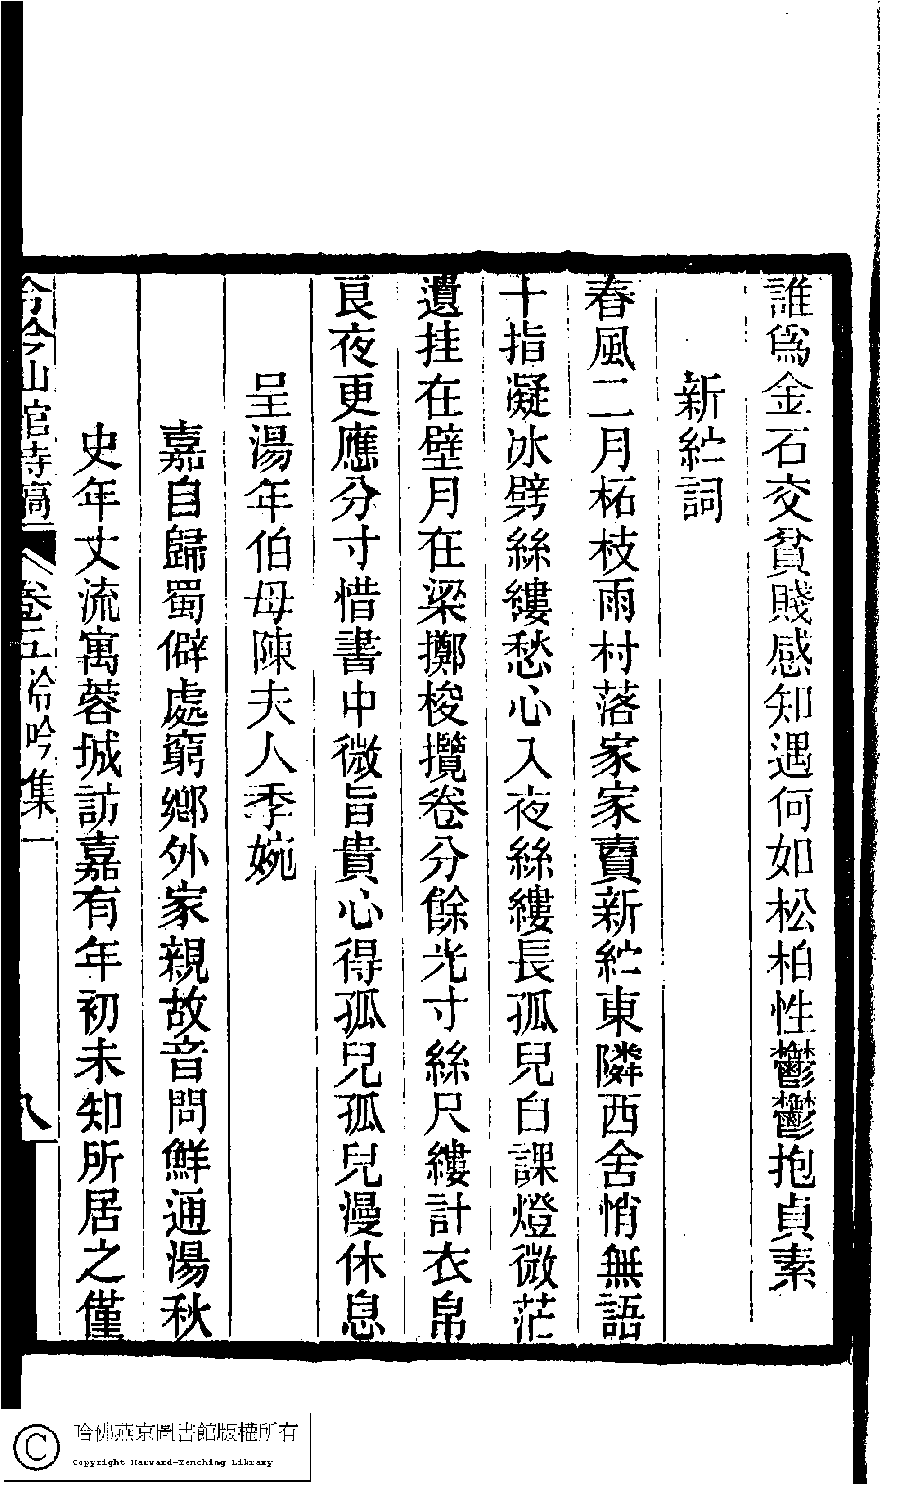 誰爲金石交貧賤感知遇何如松柏性鬱鬱抱貞素
新紝詞
春風二月柘枝雨村落家家賣新紝東隣西舍悄無語
十指凝冰劈絲縷愁心入夜絲縷長孤兒白課燈微茫
遺挂在壁月在梁擲梭攬卷分餘光寸絲尺縷計衣帛
良夜更應分寸惜書中微旨貴心得孤兒孤兒漫休息
呈湯年伯母陳夫人季婉
嘉自歸蜀僻處窮鄉外家親故音問鮮通湯秋
史年丈流寓蓉城訪嘉有年初未知所居之僅
冷吟山館詩稿
卷五冷吟集一
八
哈佛燕京圖書館版權所有
Copyright Harvard-Yenching Library